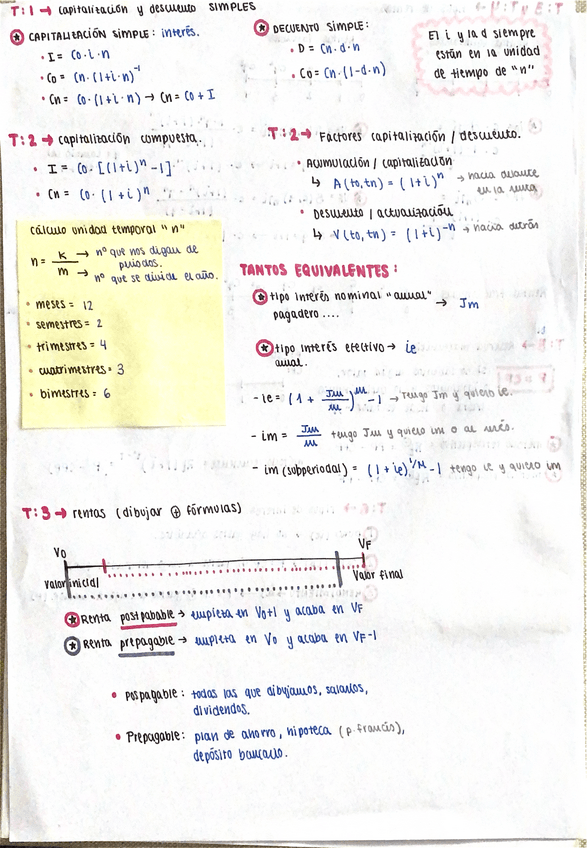 T:1 → capitalización y descuento SIMPLES
CAPITALIZACIÓN SIMPLE: interés.
• I = Co·i·n
• Co = Cn·(1+i·n)⁻¹
• Cn = Co·(1+i·n) → Cn = Co + I
DECUENTO SIMPLE:
• D = Cn·d·n
• Co = Cn·(1-d·n)
El i y la d siempre
están en la unidad
de tiempo de "n"
T:2 → capitalización compuesta.
• I = Co·[(1+i)ⁿ -1]
• Cn = Co·(1+i)ⁿ
T:2 → Factores capitalización / descuento.
• Acumulación / capitalización
↳ A(to,tn) = (1+i)ⁿ → hacia delante
en la
• Descuento / actualización
↳ V(to,tn) = (1+i)⁻ⁿ → hacia detrás
cálculo unidad temporal "n"
n = k/m → nº que nos digan de
periodos.
→ nº que se divide el año.
• meses = 12
• semestres = 2
• trimestres = 4
• cuatrimestres = 3
• bimestres = 6
TANTOS EQUIVALENTES:
tipo interés nominal "anual"
pagadero .... → Jm
tipo interés efectivo → ie
anual.
- ie = (1 + Jm/m)ᵐ -1 → tengo Jm y quiero ie.
- im = Jm/m tengo Jm y quiero im o al revés.
- im (subperiodal) = (1+ie)^1/m -1 tengo ie y quiero im
T:3 → rentas (dibujar ⊕ fórmulas)
Vo
VF
Valor inicial
Valor final
Renta postpabable → empieza en Vo+1 y acaba en VF
Renta prepagable → empieza en Vo y acaba en VF-1
• Pospagable: todas las que dibujamos, salarios,
dividendos.
• Prepagable: plan de ahorro, hipoteca (p. francés),
depósito bancario.